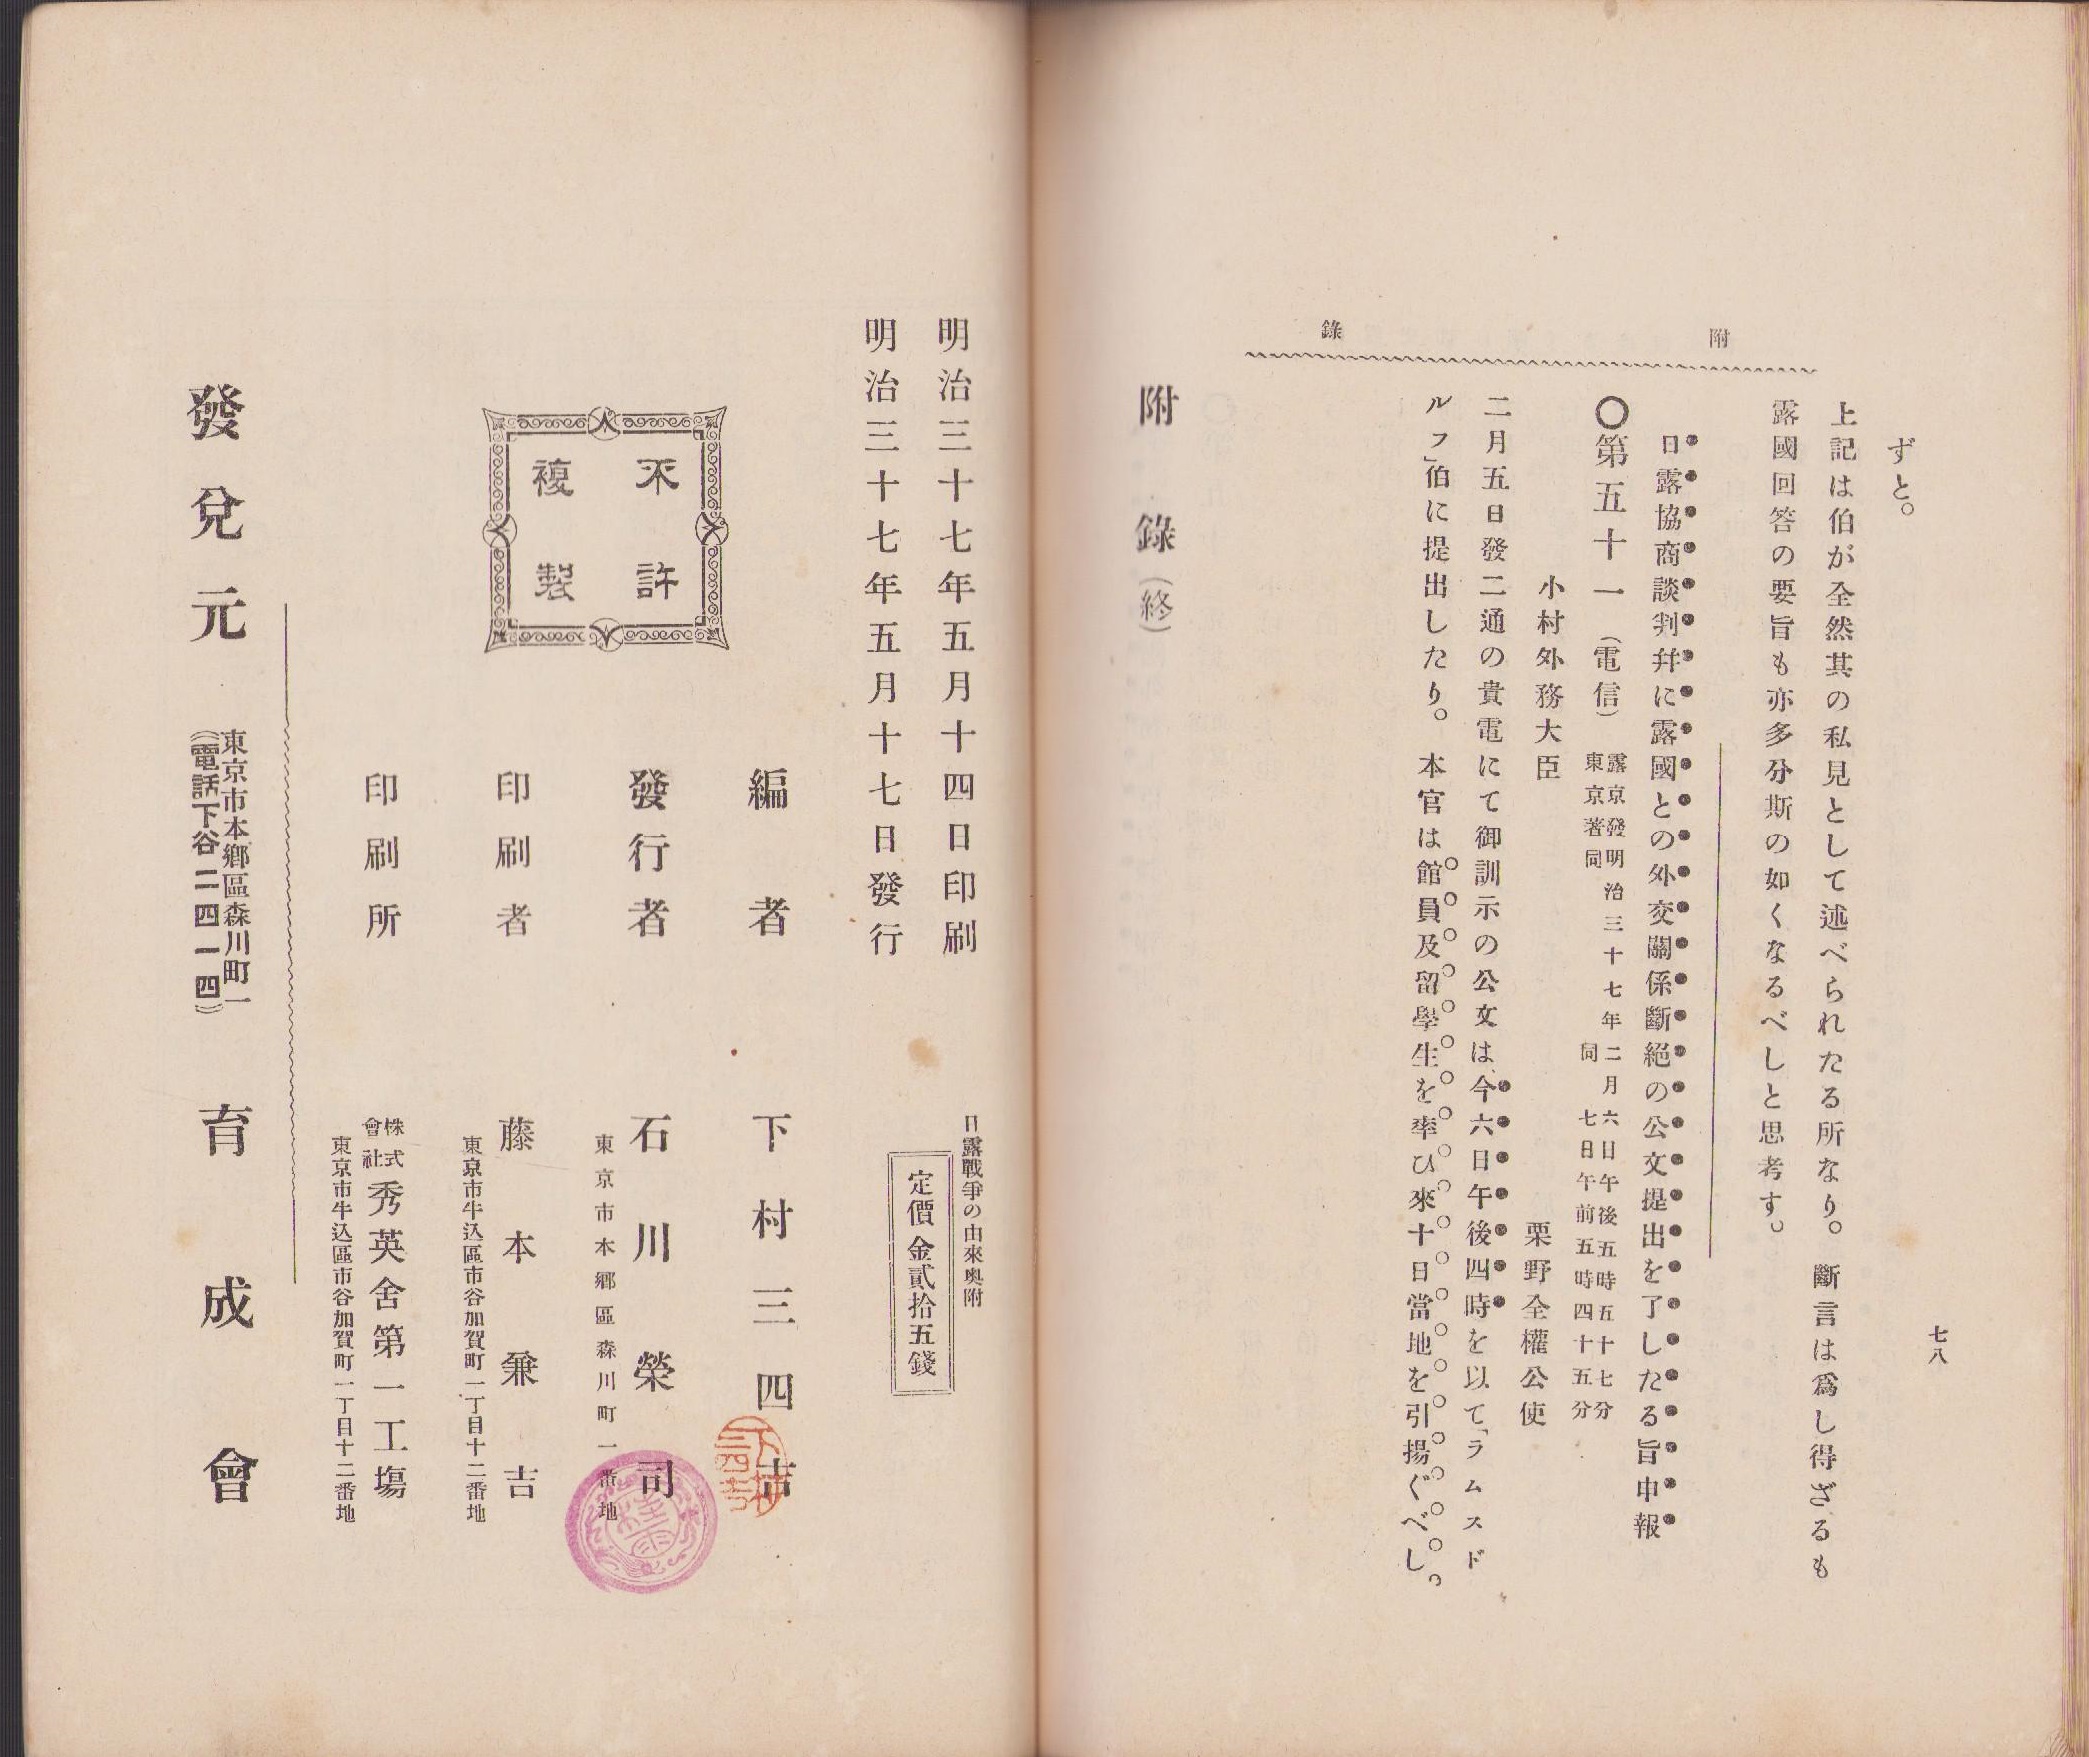 七八
附錄
ずと。
上記は伯が全然其の私見として述べられたる所なり。斷言は爲し得ざるも
露國回答の要旨も亦多分斯の如くなるべしと思考す。
日露協商談判幷に露國との外交關係斷絕の公文提出を了したる旨申報
〇第五十一(電信)
露京發明治三十七年二月六日午後五時五十七分
東京著同 同 七日午前五時四十五分
小村外務大臣 栗野全權公使
二月五日發二通の貴電にて御訓示の公文は、今六日午後四時を以て「ラムスド
ルフ」伯に提出したり。本官は館員及留學生を率ひ來十日當地を引揚ぐべし。
附錄(終)
日露戰爭の由來奥附
明治三十七年五月十四日印刷
定價金貳拾五錢
明治三十七年五月十七日發行
不許
複製
編者 下村三四吉
下村
三四吉
發行者 石川榮司
東京市本鄕區森川町一番地
印刷者 藤本兼吉
東京市牛込區市谷加賀町一丁目十二番地
印刷所 株式會社 秀英舍第一工塲
東京市牛込區市谷加賀町一丁目十二番地
發兌元
東京市本鄕區森川町一
(電話下谷二四一四)
育成會